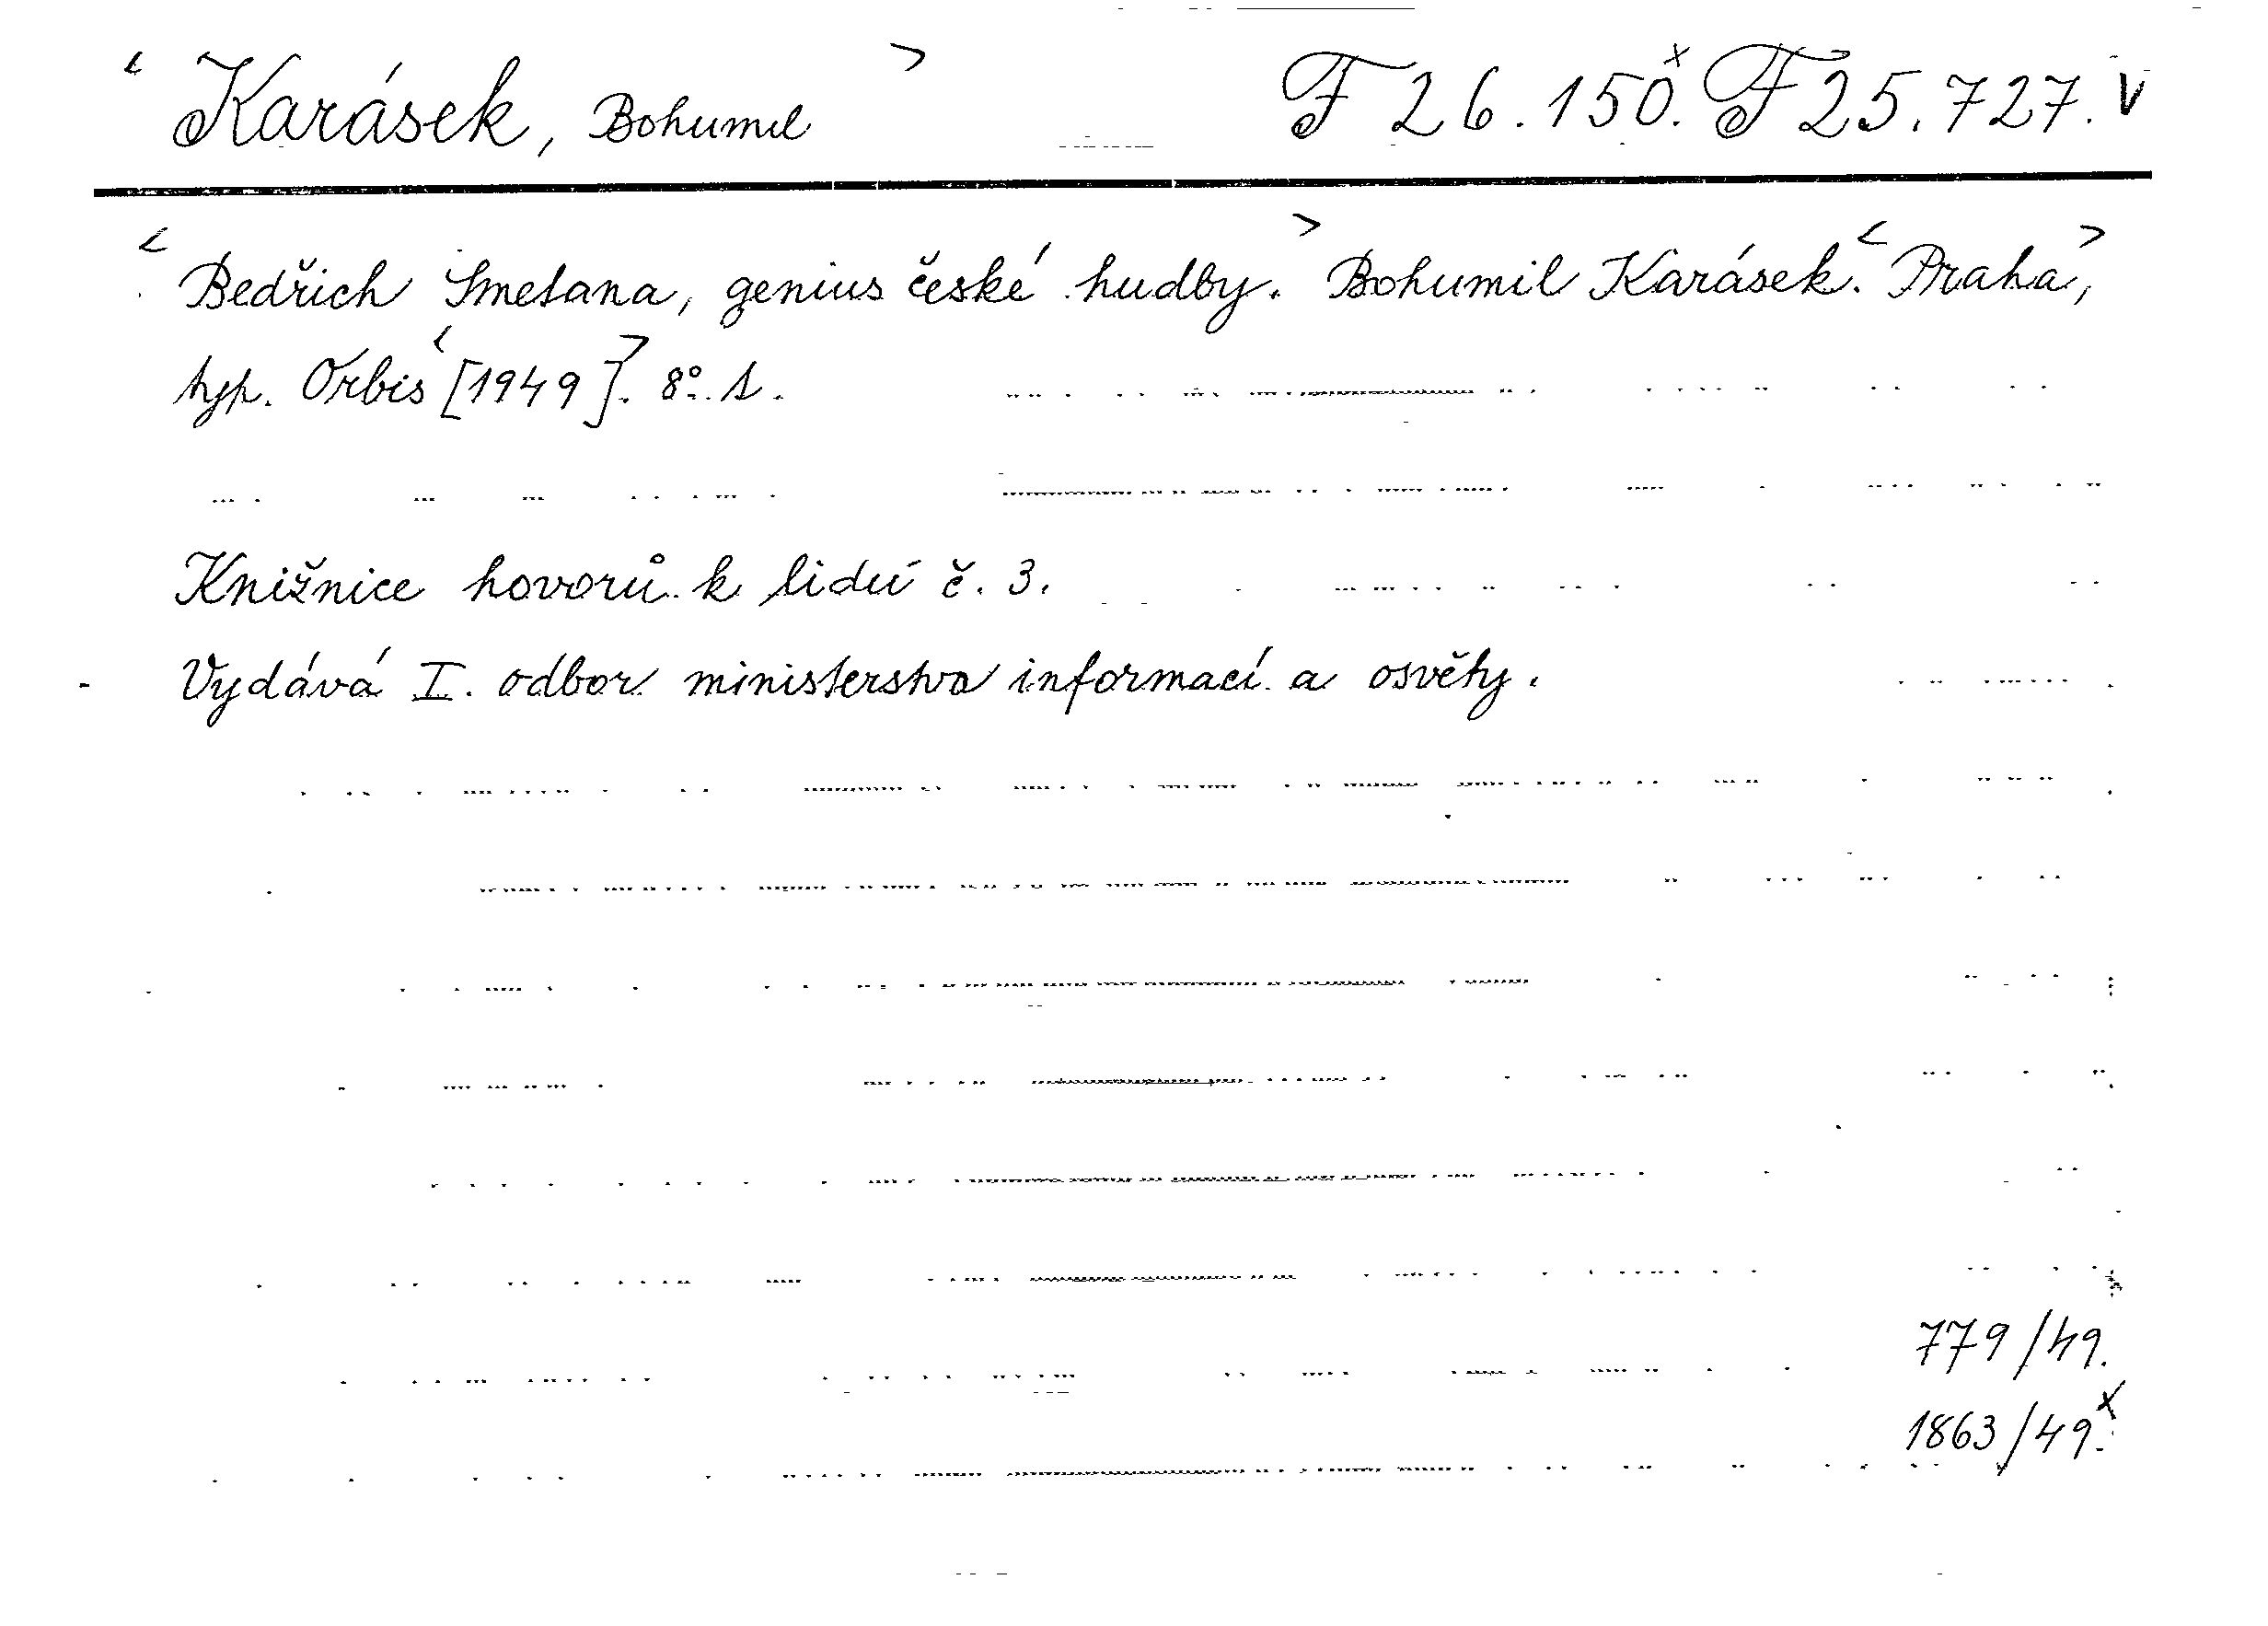 < Karásek, Bohumil > F 26.150.x F 25.727. V
< Bedřich Smetana, genius české hudby. > Bohumil Karásek. < Praha >,
typ. Orbis < [1949]. > 8°. s.
Knižnice hovorů k lidu č. 3.
Vydává I. odbor ministerstva informací a osvěty.
779/49.
1863/49.x